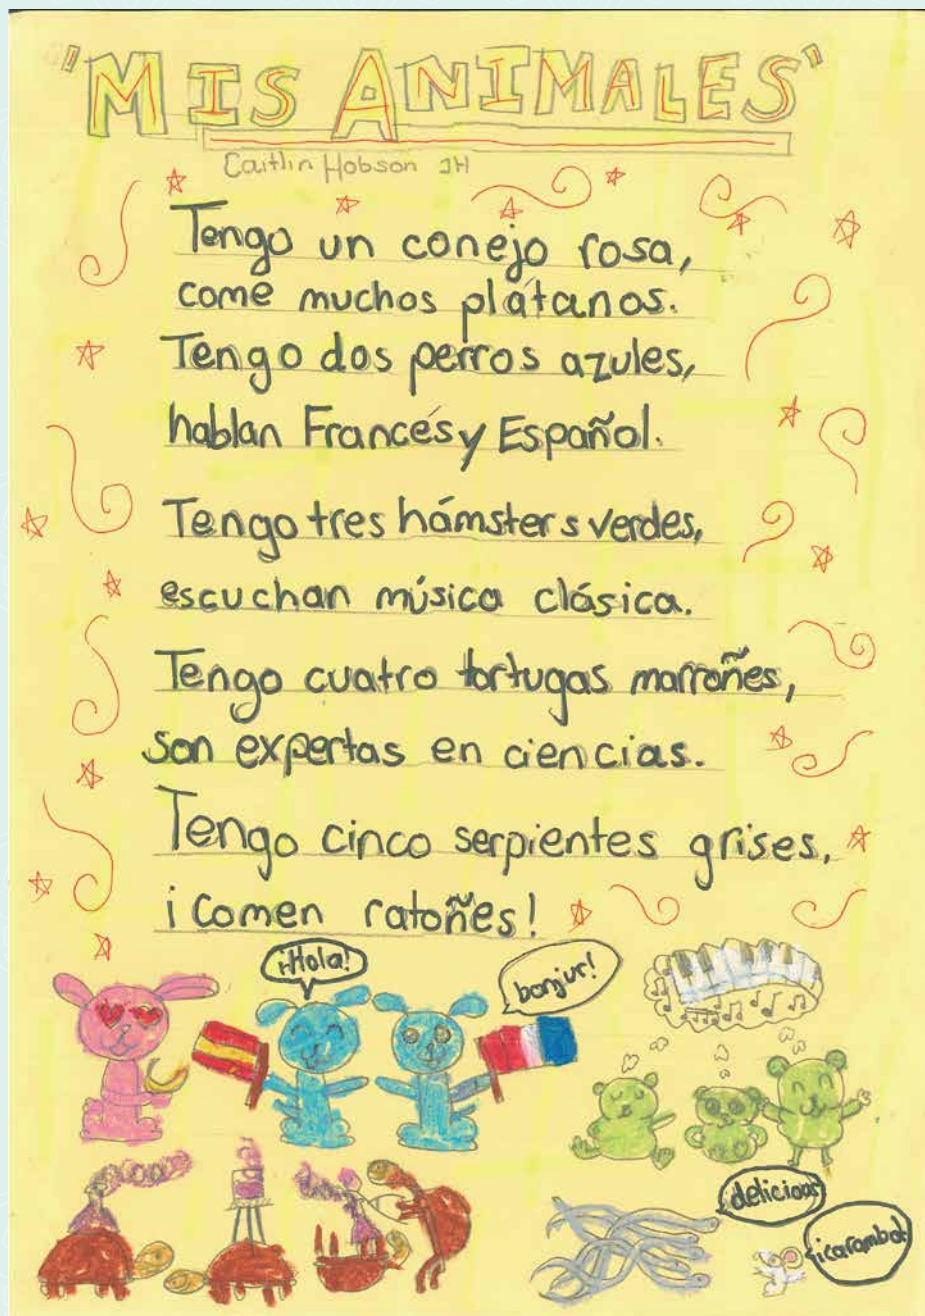 "MIS ANIMALES"
Caitlin Hobson JH
Tengo un conejo rosa,
come muchos plátanos.
Tengo dos perros azules,
hablan Francés y Español.
Tengo tres hámsters verdes,
escuchan música clásica.
Tengo cuatro tortugas marroñes,
son expertas en ciencias.
Tengo cinco serpientes grises,
¡Comen ratoñes!
¡Hola!
bonjur!
delicioas
¡caramba!